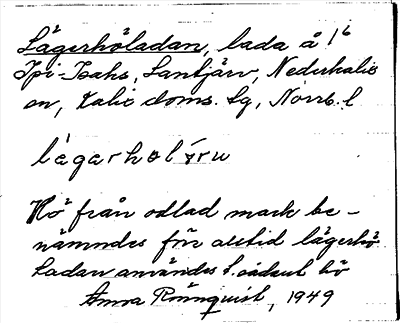 Lägerhöladan, lada å 16
Ipi-Isaks, Lantjärv, Nederkalix
sn, Kalix doms. lg, Norrb. l
lägarhö
Hö från odlad mark be-
nämndes för alltid lägerhö
Ladan användes t. sådant hö
Anna Rönnquist, 1949